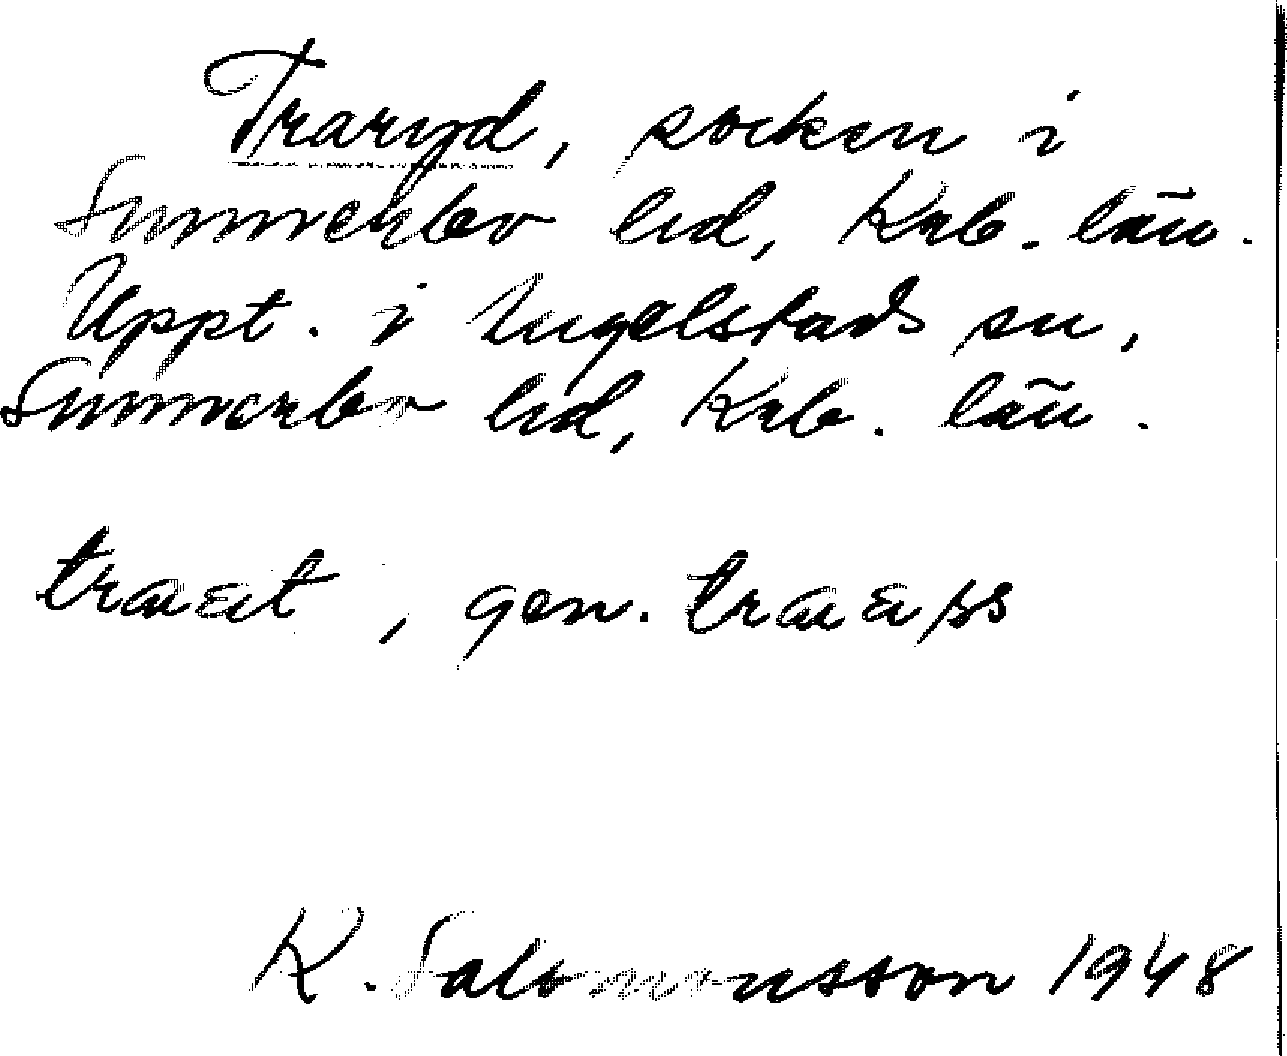 Traryd, socken i
Sunnerbo hd, Krb. län.
Uppt. i Ingelstads sn,
Sunnerbo hd, Krb. län.
gen.
K. Salomonsson 1948